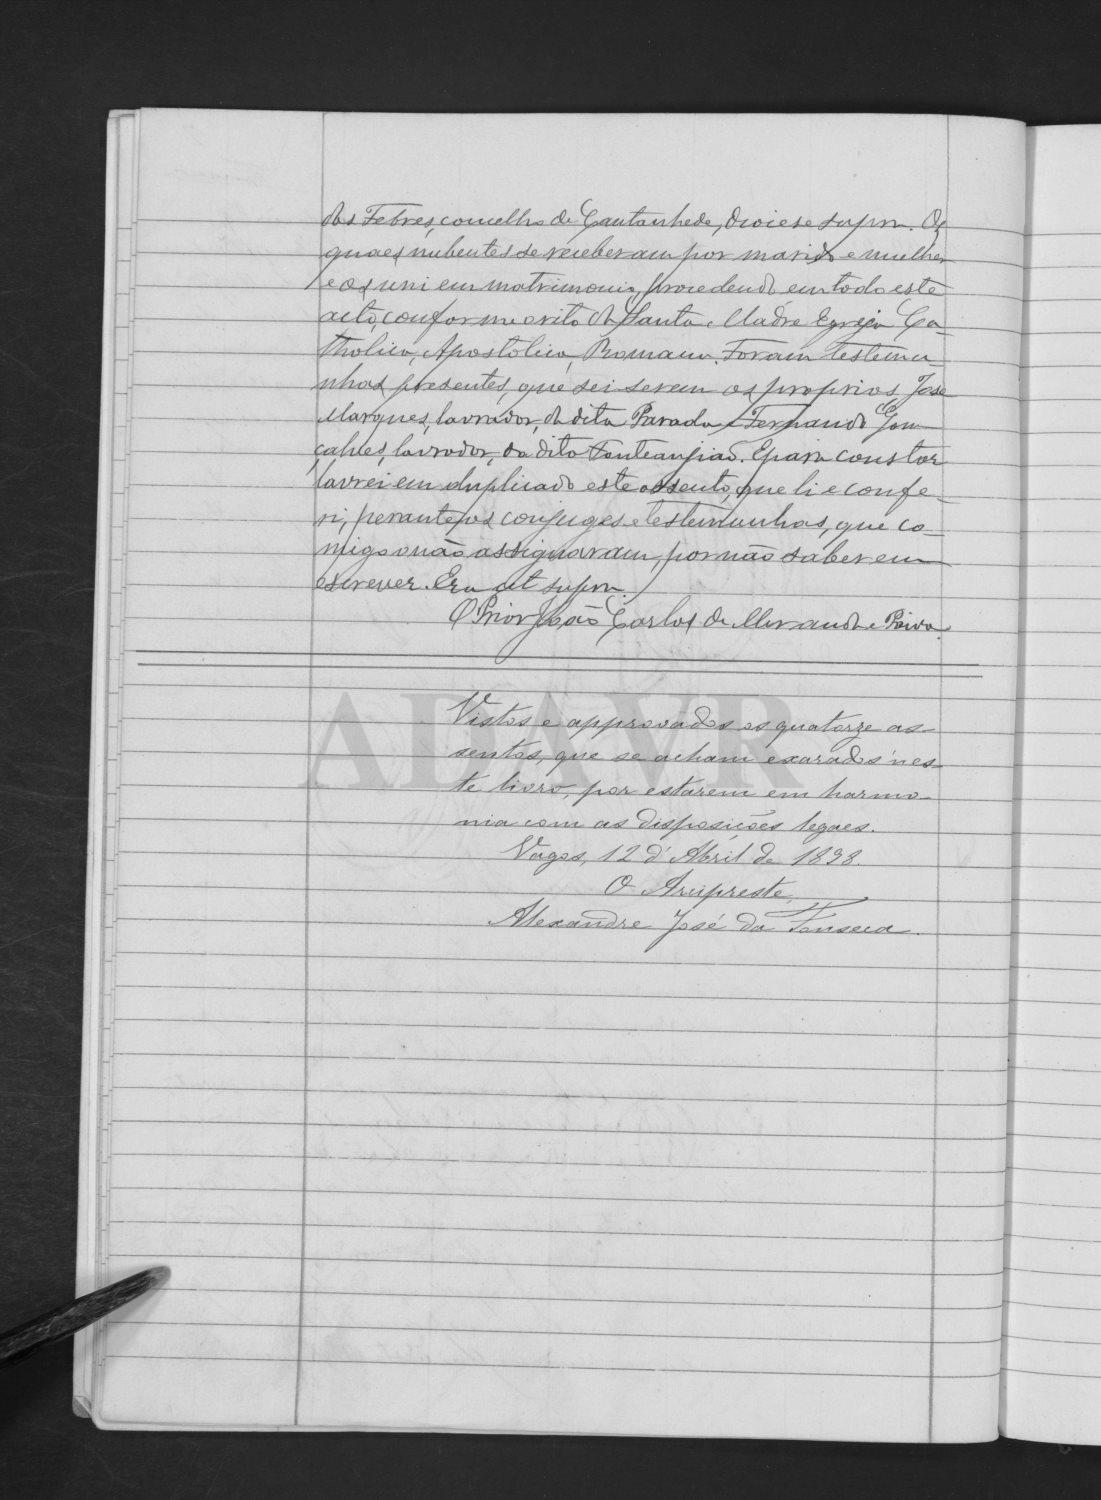 das Febres, concelho de Cantanhede, diocese supra. Os
quaes nubentes se receberam por marido e mulher
e os uni em matrimonio, procedendo em todo este
acto, conforme o rito da Santa Madre Egreja Ca-
tholica, Apostolica, Romana. Foram testemu
nhas presentes, que sei serem os proprios, José
Marques, lavrador, da dita Parada e Fernando Gon-
çalves, lavrador, da dita Fonteangiao. E para constar
lavrei em duplicado este assento, que li e confe-
ri, perante os conjuges e testemunhas, que co-
migo o não assignaram, por não saberem
escrever. Era ut supra.
O Prior João Carlos de Miranda e Paiva.
Vistos e approvados os quatorze as-
sentos, que se acham exarados n'es-
te livro, por estarem em harmo-
nia com as disposições legaes.
Vagos, 12 d'Abril de 1898.
O Arcipreste,
Alexandre José da Fonseca.
ADAVR